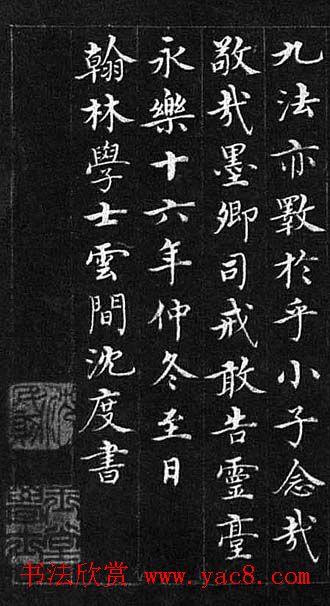 九法亦斁於乎小子念哉
敬哉墨卿司戒敢告靈臺
永樂十六年仲冬至日
翰林學士雲間沈度書
书法欣赏 www.yac8.com